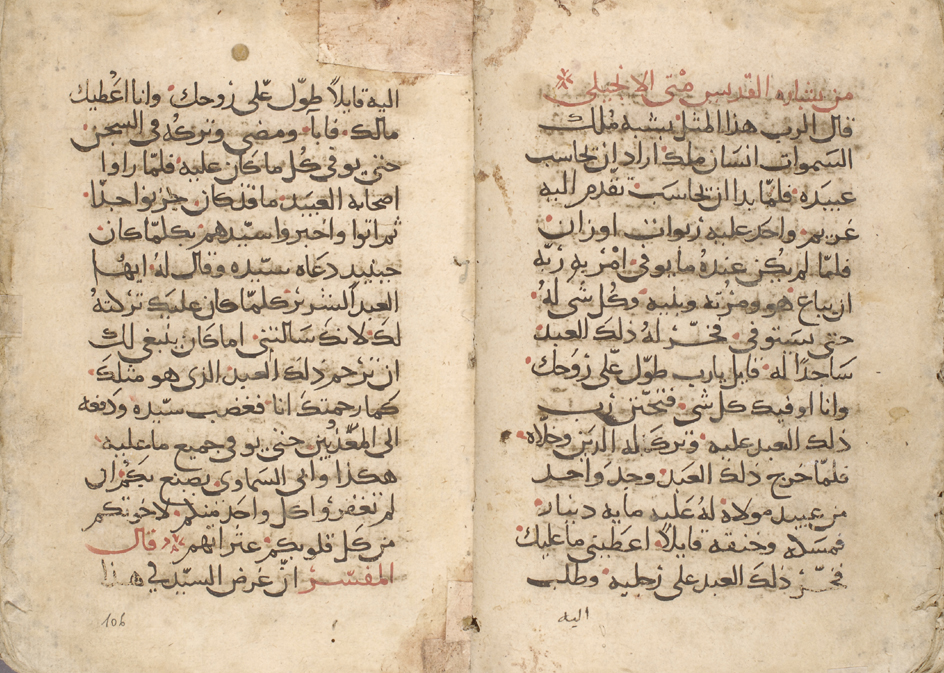 من بشارة القديس متى الانجيلي
قال الرب هذا المثل يشبه ملك
السموات انسان ملك اراد ان يحاسب
عبيده فلما بدا ان يحاسب تقدم اليه
غريم واحد عليه ربوات اوزان
فلما لم يكن عنده ما يوفي امر به ربه
ان يباع هو ومرته وبنيه وكل شي له
حتى يستوفي فخر له ذلك العبد
ساجدًا له قايل يارب طوّل عليّ روحك
وانا اوفيك كل شي فتحنن رب
ذلك العبد عليه وترك له الدين وخلاه
فلما خرج ذلك العبد وجد واحد
من عبيد مولاه له عليه مايه دينار
فمسكه وخنقه قايلاً اعطيني ما عليك
فخرّ ذلك العبد على رجليه وطلب
اليه
اليه قايلاً طوّل عليّ روحك وانا اعطيك
مالك فابا ومضى وتركه في السجن
حتى يوفي كل ما كان عليه فلما راوا
اصحابه العبيد ما قد كان حزنوا جدًا
ثم اتوا واخبروا سيدهم بكلما كان
حينيدٍ دعاه سيده وقال له ايها
العبد الشرير كلما كان عليك تركته
لك لانك سالتني اما كان ينبغي لك
ان ترحم ذلك العبد الذي هو مثلك
كما رحمتك انا فغضب سيده ودفعه
الى المعذبين حتى يوفي جميع ما عليه
هكذا وابي السماوي يصنع بكم ان
لم تغفروا كل واحد منكم لاخوتكم
من كل قلوبكم عثراتهم قال
المفسّر انّ غرض السيّد في هذا
106